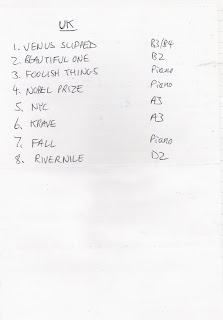 UK
1. VENUS SLIPPED B3/B4
2. BEAUTIFUL ONE B2
3. FOOLISH THINGS Piano
4. NOBEL PRIZE Piano
5. NYC A3
6. KRAVE A3
7. FALL Piano
8. RIVERNILE D2